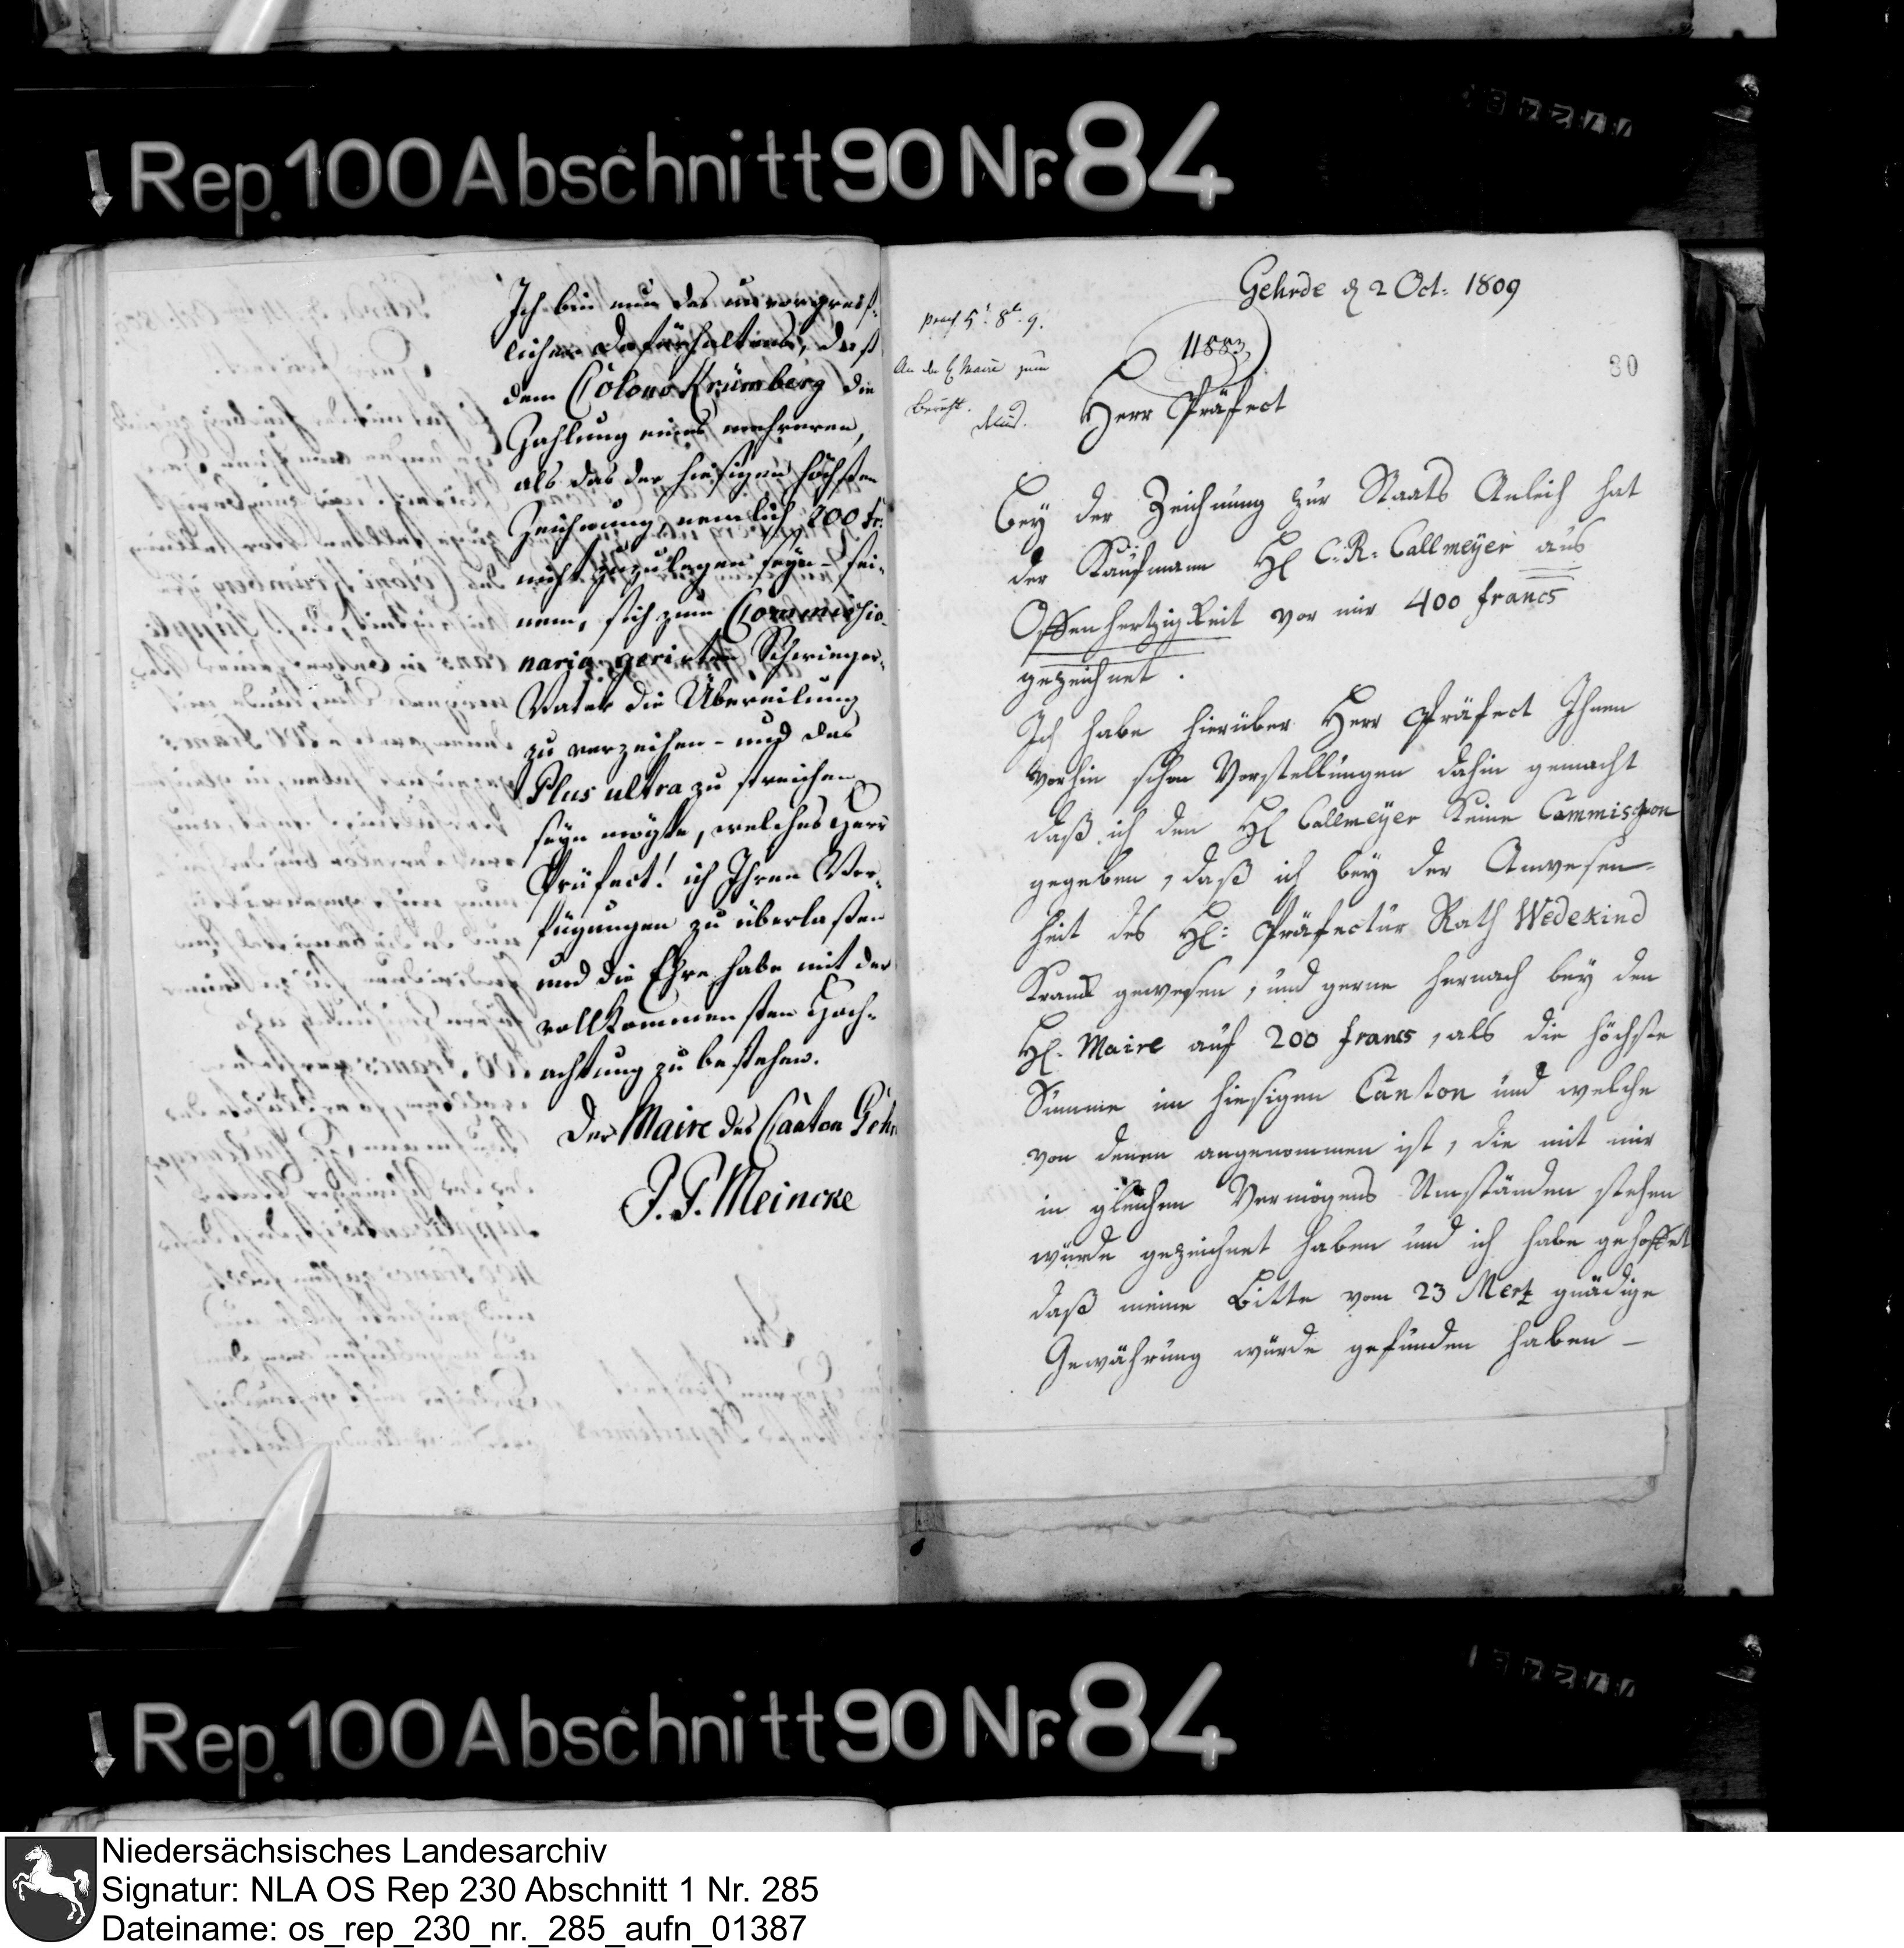 Rep. 100 Abschnitt 90 Nr. 84
Ich bin nun des unvorgreif-
lichen Dafürhaltens, daß
dem Colono Krümberg die
Zahlung eines mehreren,
als das der hiesigen höchsten
Zeichnung, nemlich 200 fr.
nicht zuzulegen seyn - sei-
nem, sich zum Commissio-
nario Schwieger-
Vater die Übereilung
zu verzeihen - und das
Plus ultra zu streichen
seyn mögte, welches Herr
Präfect! ich Ihren Ver-
fügungen zu überlaßen
und die Ehre habe mit der
vollkommensten Hoch-
achtung zu bestehen.
Der Maire des Canton Gehr
J. G. Meincke
Gehrde d 2 Oct. 1809
11883
80
An den H Maire zum
Bericht.
Herr Präfect
Bey der Zeichnung zur Staats Anleih hat
der Kaufmann H C. R. Callmeyer aus
Offenhertzigkeit vor mir 400 francs
gezeichnet.
Ich habe hierüber Herr Präfect Ihnen
vorhin schon Vorstellungen dahin gemacht
daß ich den H Callmeyer keine Commission
gegeben, daß ich bey der Anwesen-
heit des H: Präfectur Rath Wedekind
Krank gewesen, und gerne hernach bey den
H. Maire auf 200 francs, als die höchste
Summe im hiesigen Canton und welche
von denen angenommen ist, die mit mir
in gleichen Vermögens Umständen stehen
würde gezeichnet haben und ich habe gehoffet
daß meine Bitte vom 23 Mertz gnädige
Gewährung würde gefunden haben –
Rep. 100 Abschnitt 90 Nr. 84
Niedersächsisches Landesarchiv
Signatur: NLA OS Rep 230 Abschnitt 1 Nr. 285
Dateiname: os_rep_230_nr._285_aufn_01387